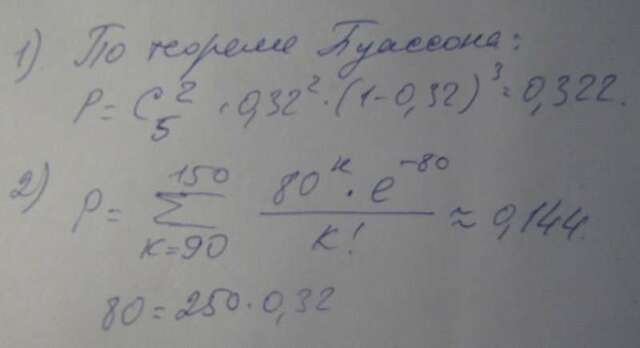 1) По теореме Пуассона:
P = C₅² · 0,32² · (1-0,32)³ = 0,322.
2) P = ∑_{K=90}^{150} (80^K · e^{-80}) / K! ≈ 0,144.
80 = 250 · 0,32